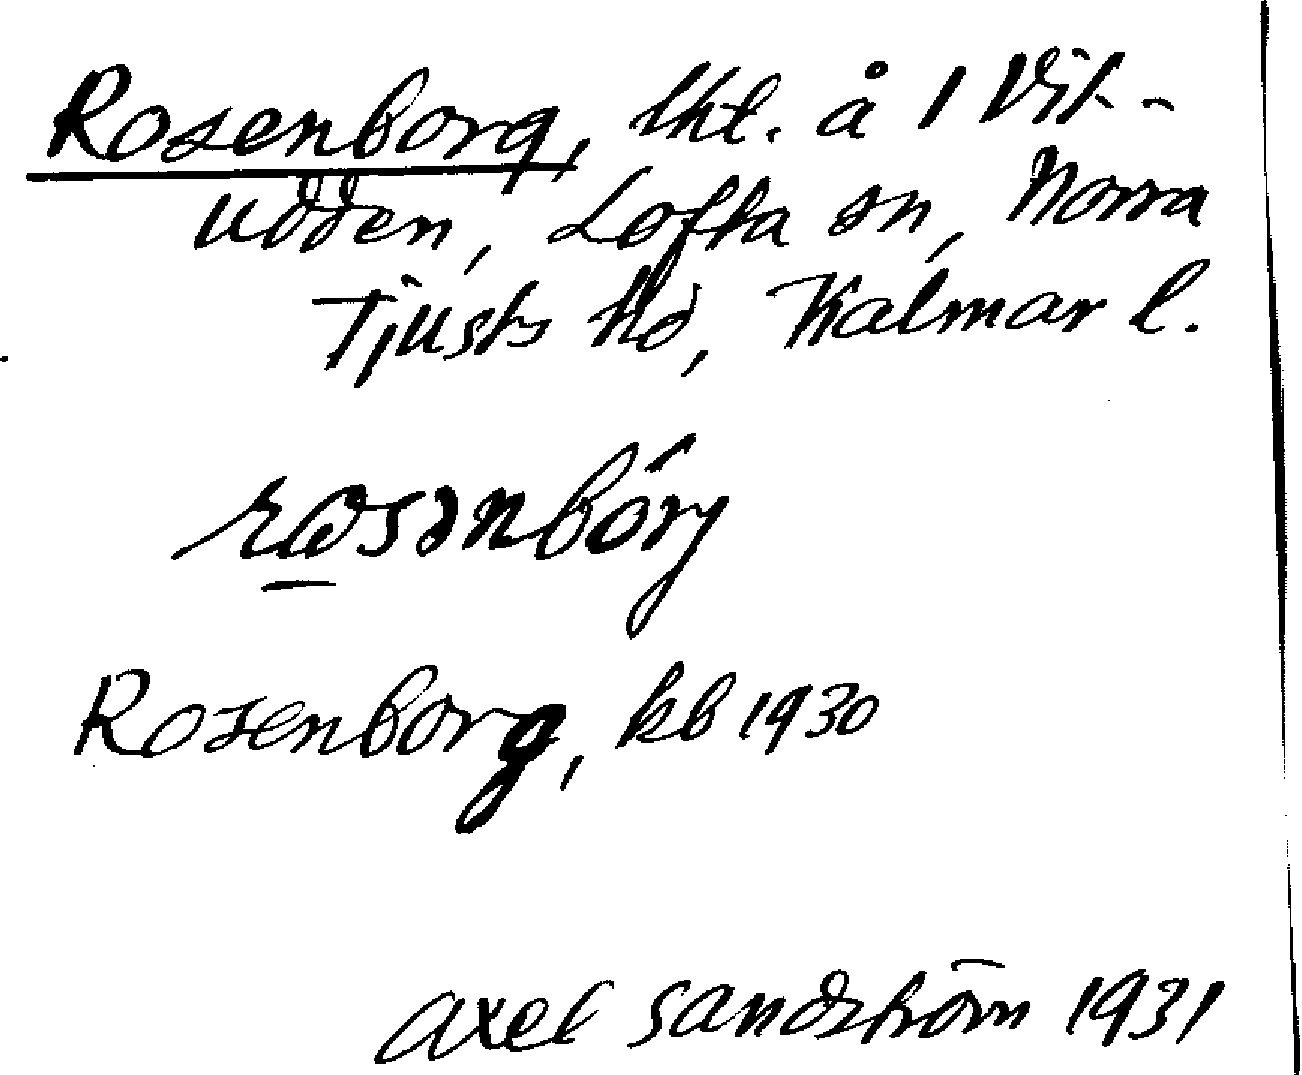 Rosenborg, lht. å 1 Vit-
udden, Lofta sn, Norra
Tjusts hd, Kalmar l.
Rosenborg, kb 1930
Axel Sandström 1931